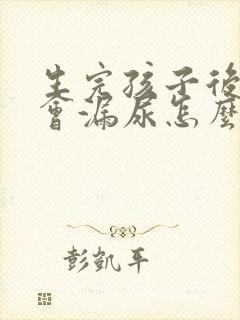 生完孩子後
會漏尿怎麼
彭凱平